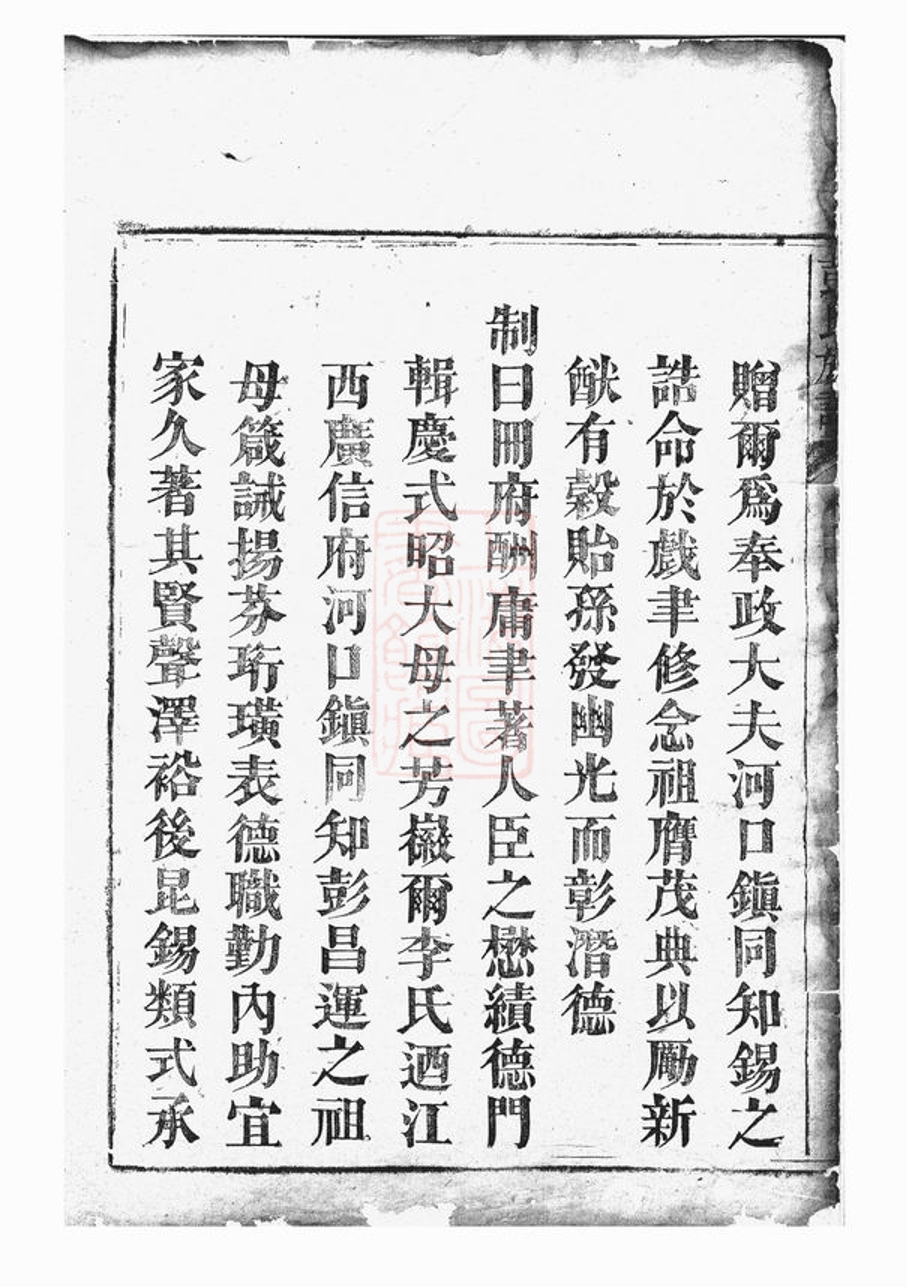 贈爾爲奉政大夫河口鎭同知錫之
誥命於戲聿修念祖膺茂典以勵新
猷有穀貽孫發幽光而彰潛德
制曰冊府酬庸聿著人臣之懋績德門
輯慶式昭大母之芳徽爾李氏迺江
西廣信府河口鎭同知彭昌運之祖
母箴誡揚芬珩璜表德職勤內助宜
家久著其賢聲澤裕後昆錫類式承